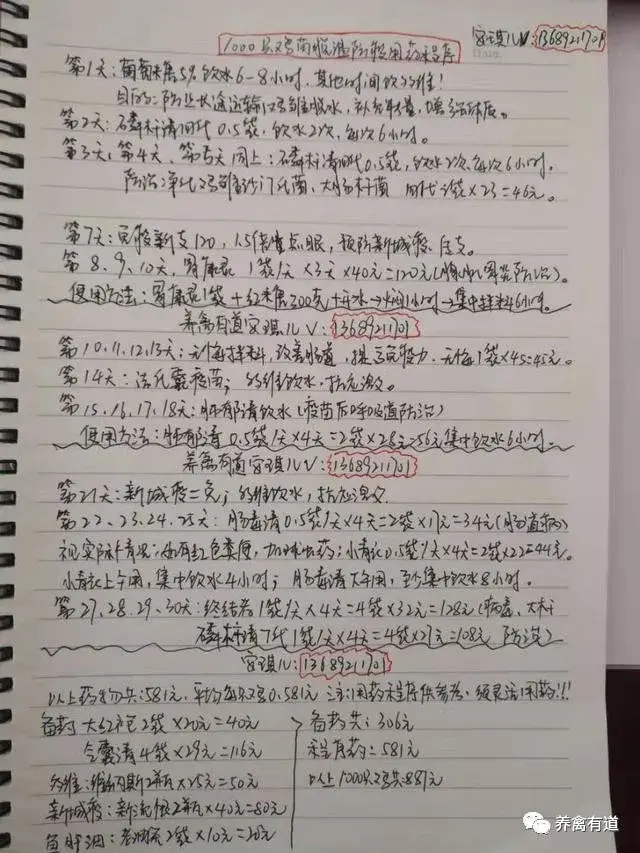 1000只鸡苗脱温阶段用药程序
宫琪儿V:13689211701
第1天:葡萄糖5%饮水6-8小时,其他时间饮多维!
目的:防止长途运输鸡雏脱水,补充能量,增强体质。
第2天:磷杆清四代0.5袋,饮水2次,每次6小时。
第3天、第4天、第5天同上:磷杆清四代0.5袋,饮水2次,每次6小时。
防治:净化鸡雏沙门氏菌、大肠杆菌 四代2袋×23=46元。
第7天:免疫新支120,1.5倍量点眼,预防新城疫、传支。
第8、9、10天,胃康君 1袋/天×3天×40元=120元(腺肌胃炎防治)。
使用方法:胃康君1袋+红糖200克+开水→焖1小时→集中拌料6小时。
养禽有道宫琪儿V:13689211701
第10.11.12.13天:元海拌料,改善肠道,提高免疫力,元海1袋×45=45元。
第14天:法氏囊疫苗;多维饮水,抗应激。
第15.16.17.18天:肺郁清饮水(疫苗后呼吸道防治)
使用方法:肺郁清0.5袋/天×4天=2袋×28元=56元集中饮水6小时。
养禽有道宫琪儿V:13689211701
第21天:新城疫二免;多维饮水,抗应激
第22、23.24.25天:肠毒清0.5袋/天×4天=2袋×17元=34元(肠道病)
视实际情况:如有红色粪便,加球虫药:小青记0.5袋/天×4天=2袋×22=44元。
小青记上午用,集中饮水4小时;肠毒清下午用,至少集中饮水8小时。
第27.28.29、30天:终结者1袋/天×4天=4袋×32元=128元(病毒、大杆
磷杆清7代1袋/天×4天=4袋×27元=108元 防治)
宫琪儿:13689211701
以上药物共:581元,平均每只鸡0.581元 注:用药程序供参考,须灵活用药!!!
备药 大红袍2袋×20元=40元
备药共:306元
令囊清4袋×29元=116元
程序药:581元
多维: 2瓶×25元=50元
以上1000只鸡共:887元
新城疫: 2瓶×40元=80元
2袋×10元=20元
养禽有道